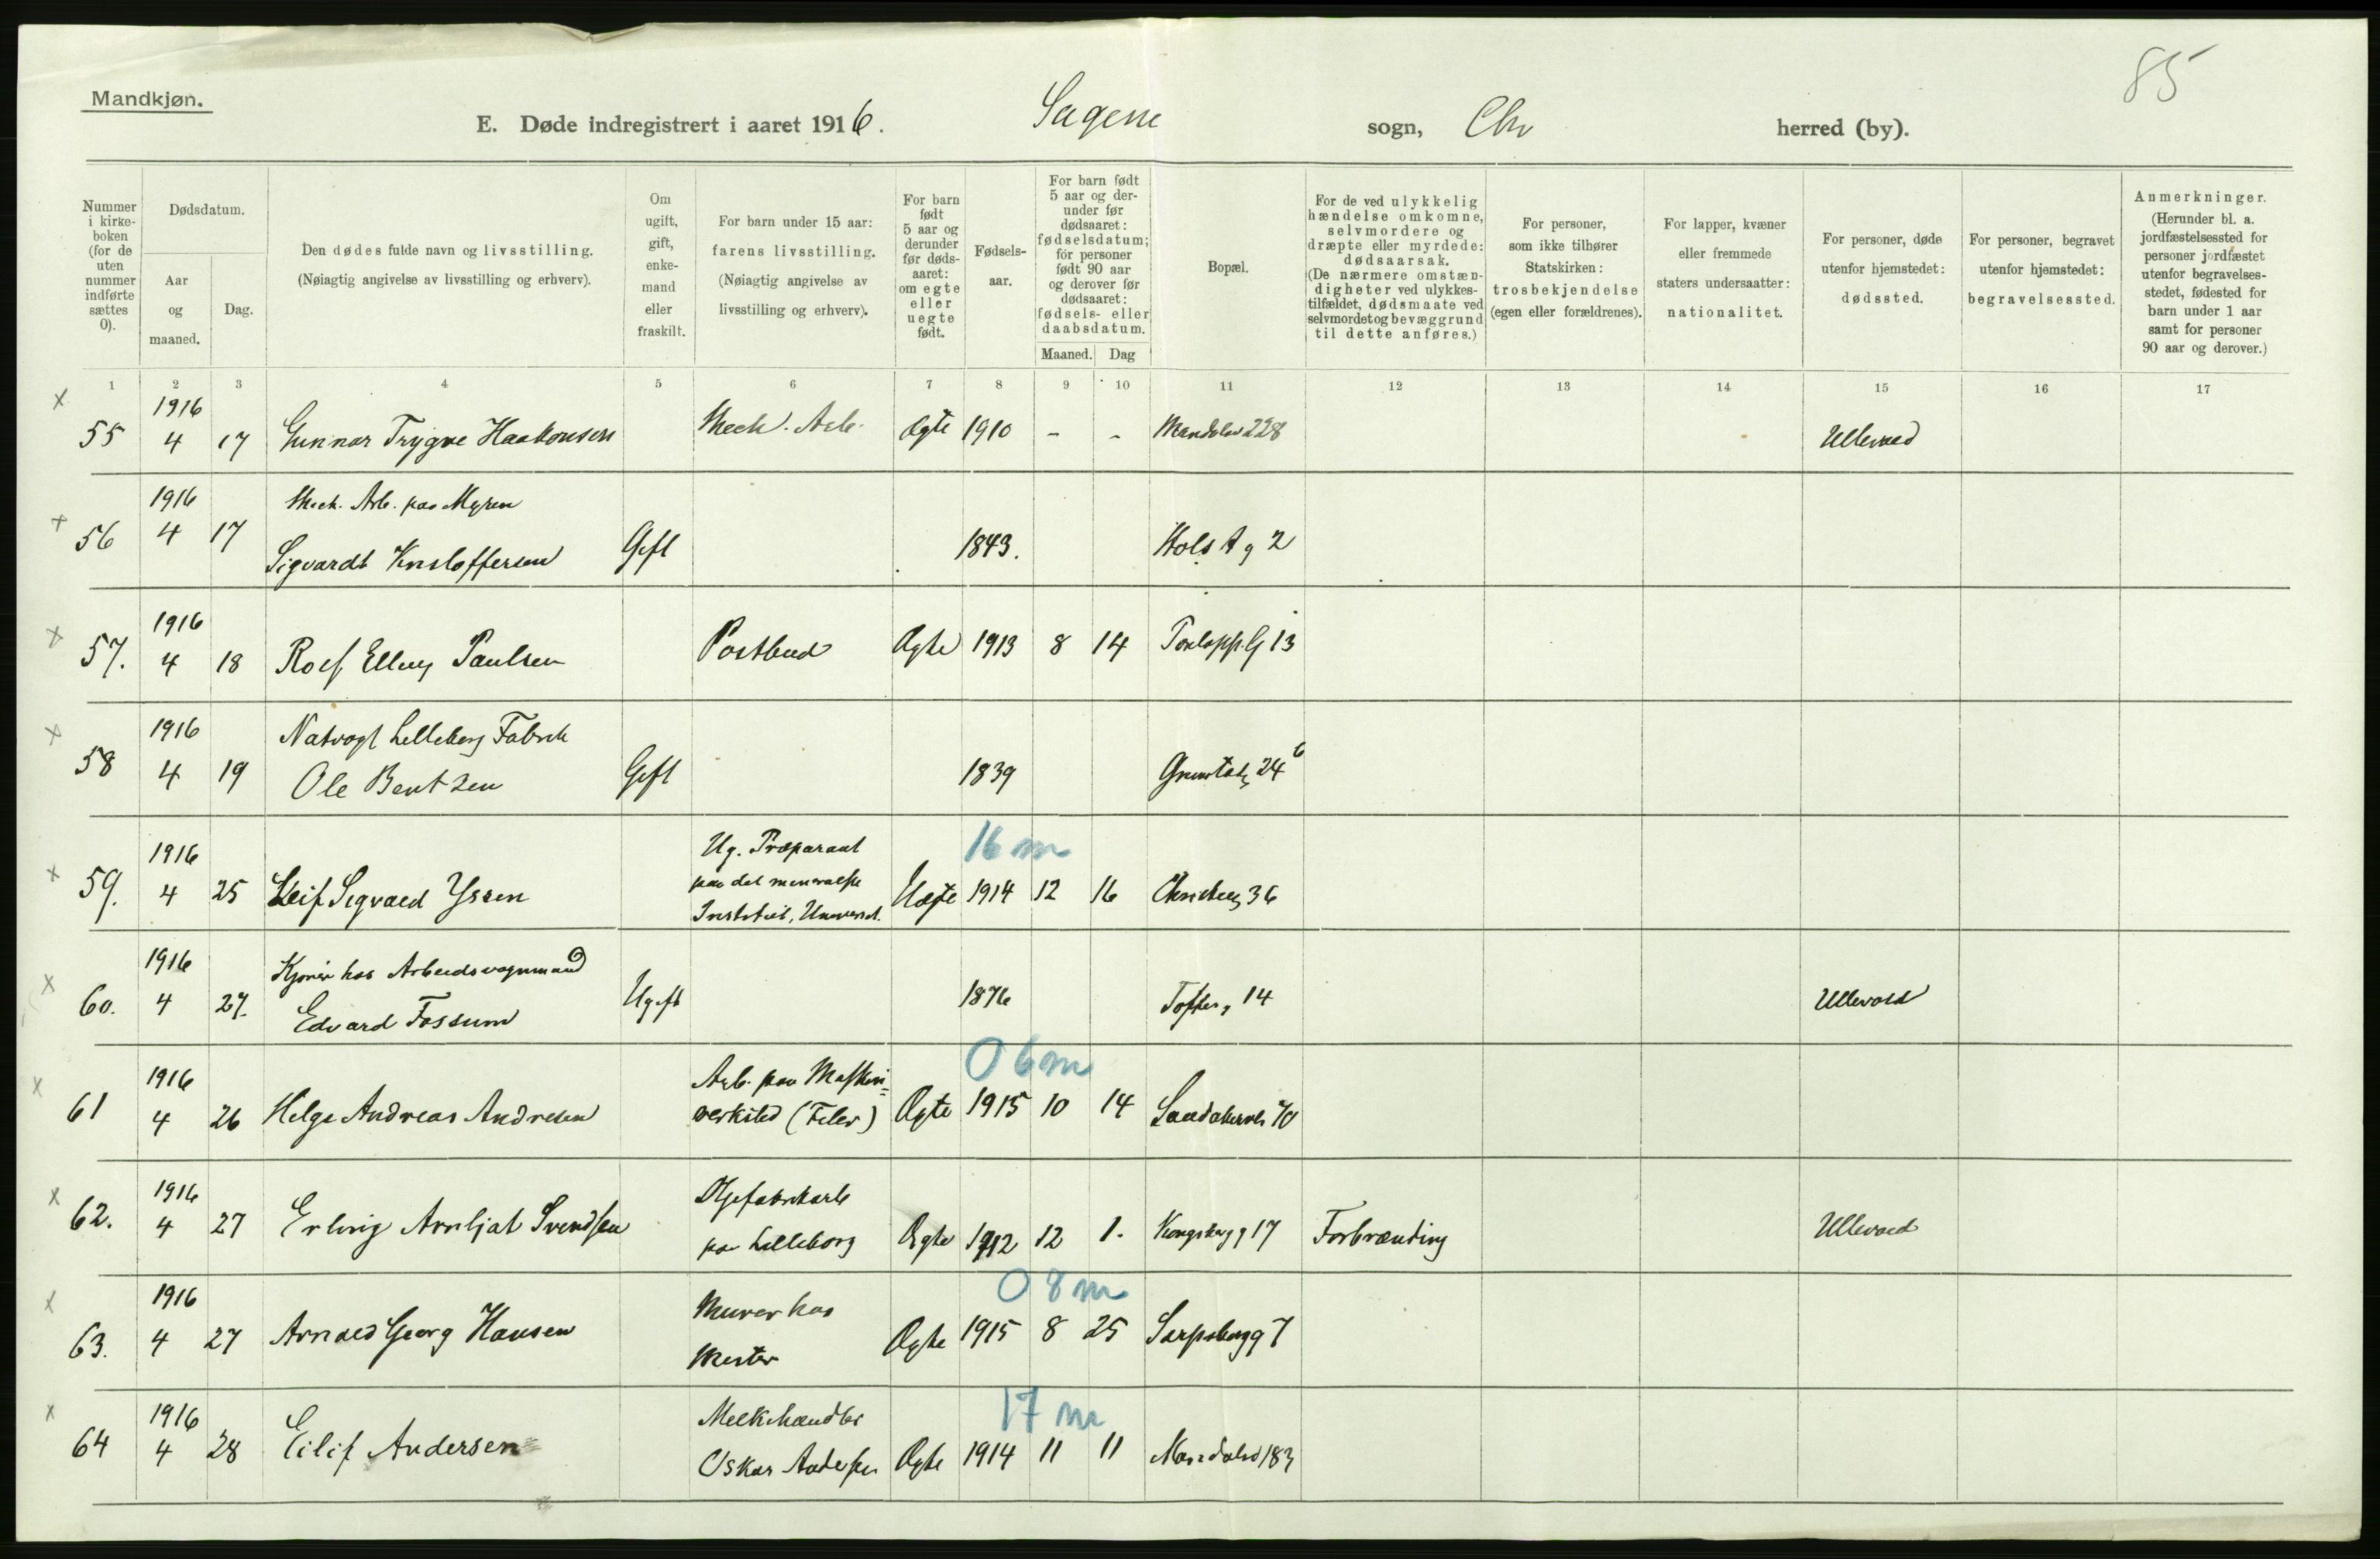 85
Mandkjøn.
E. Døde indregistrert i aaret 1916. Sagene sogn, Chr herred (by).
Nummer i kirke-boken (for de uten nummer indførte sættes 0).
Dødsdatum.
Aar og maaned.
Dag.
Den dødes fulde navn og livsstilling.
(Nøiagtig angivelse av livsstilling og erhverv).
Om ugift, gift, enke-mand eller fraskilt.
For barn under 15 aar:
farens livsstilling.
(Nøiagtig angivelse av livsstilling og erhverv).
For barn født 5 aar og derunder før døds-aaret: om egte eller uegte født.
Fødsels-aar.
For barn født 5 aar og der-under før dødsaaret: fødselsdatum; for personer født 90 aar og derover før dødsaaret: fødsels- eller daabsdatum.
Maaned. Dag
Bopæl.
For de ved ulykkelig hændelse omkomne, selvmordere og dræpte eller myrdede: dødsaarsak.
(De nærmere omstæn-digheter ved ulykkes-tilfældet, dødsmaate ved selvmordet og bevæggrund til dette anføres.)
For personer, som ikke tilhører Statskirken: trosbekjendelse (egen eller forældrenes).
For lapper, kvæner eller fremmede staters undersaatter: nationalitet.
For personer, døde utenfor hjemstedet: dødssted.
For personer, begravet utenfor hjemstedet: begravelsessted.
Anmerkninger.
(Herunder bl. a. jordfæstelsessted for personer jordfæstet utenfor begravelses-stedet, fødested for barn under 1 aar samt for personer 90 aar og derover.)
1 2 3 4 5 6 7 8 9 10 11 12 13 14 15 16 17
x 1916
55 4 17 Gunnar Trygve Haakonsen Mek. Arb. Ægte 1910 - - 228 Ullevaal
x 1916 Mek. Arb. paa Myren
56 4 17 Sigvardt Kristoffersen Gift 1843. Holst g 2
x 1916
57. 4 18 Rolf Elling Paulsen Postbud Ægte 1913 8 14 13
x 1916 Natvagt Lilleborg Fabrik
58 4 19 Ole Bentzen Gift 1839 24 b
x 1916 Ug. Præparant 16 m
59. 4 25 Leif Sigvald paa det mineralske Uægte 1914 12 16 36
Institut, Universit.
x 1916 Kjører hos Arbeidsvognmand
60. 4 27. Edvard Fossum Ugift 1876 Tofteg 14 Ullevold
x 1916 Arb. paa Maskin= 0 6 m
61 4 26 Helge Andreas Andresen verksted (Filer) Ægte 1915 10 14 Sandakerv 70
x 1916 Oljefabrikarb
62. 4 27 Erling Arnljot Svendsen paa Lilleborg Ægte 1912 12 1. Kongsbergg 17 Forbrænding Ullevaal
x 1916 Murer hos 0 8 m
63. 4 27 Arnold Georg Hansen Mester Ægte 1915 8 25 Sarpsborgg 7
x 1916 Melkehandler 17 m
64 4 28 Eilif Andersen Oskar Andersen Ægte 1914 11 11